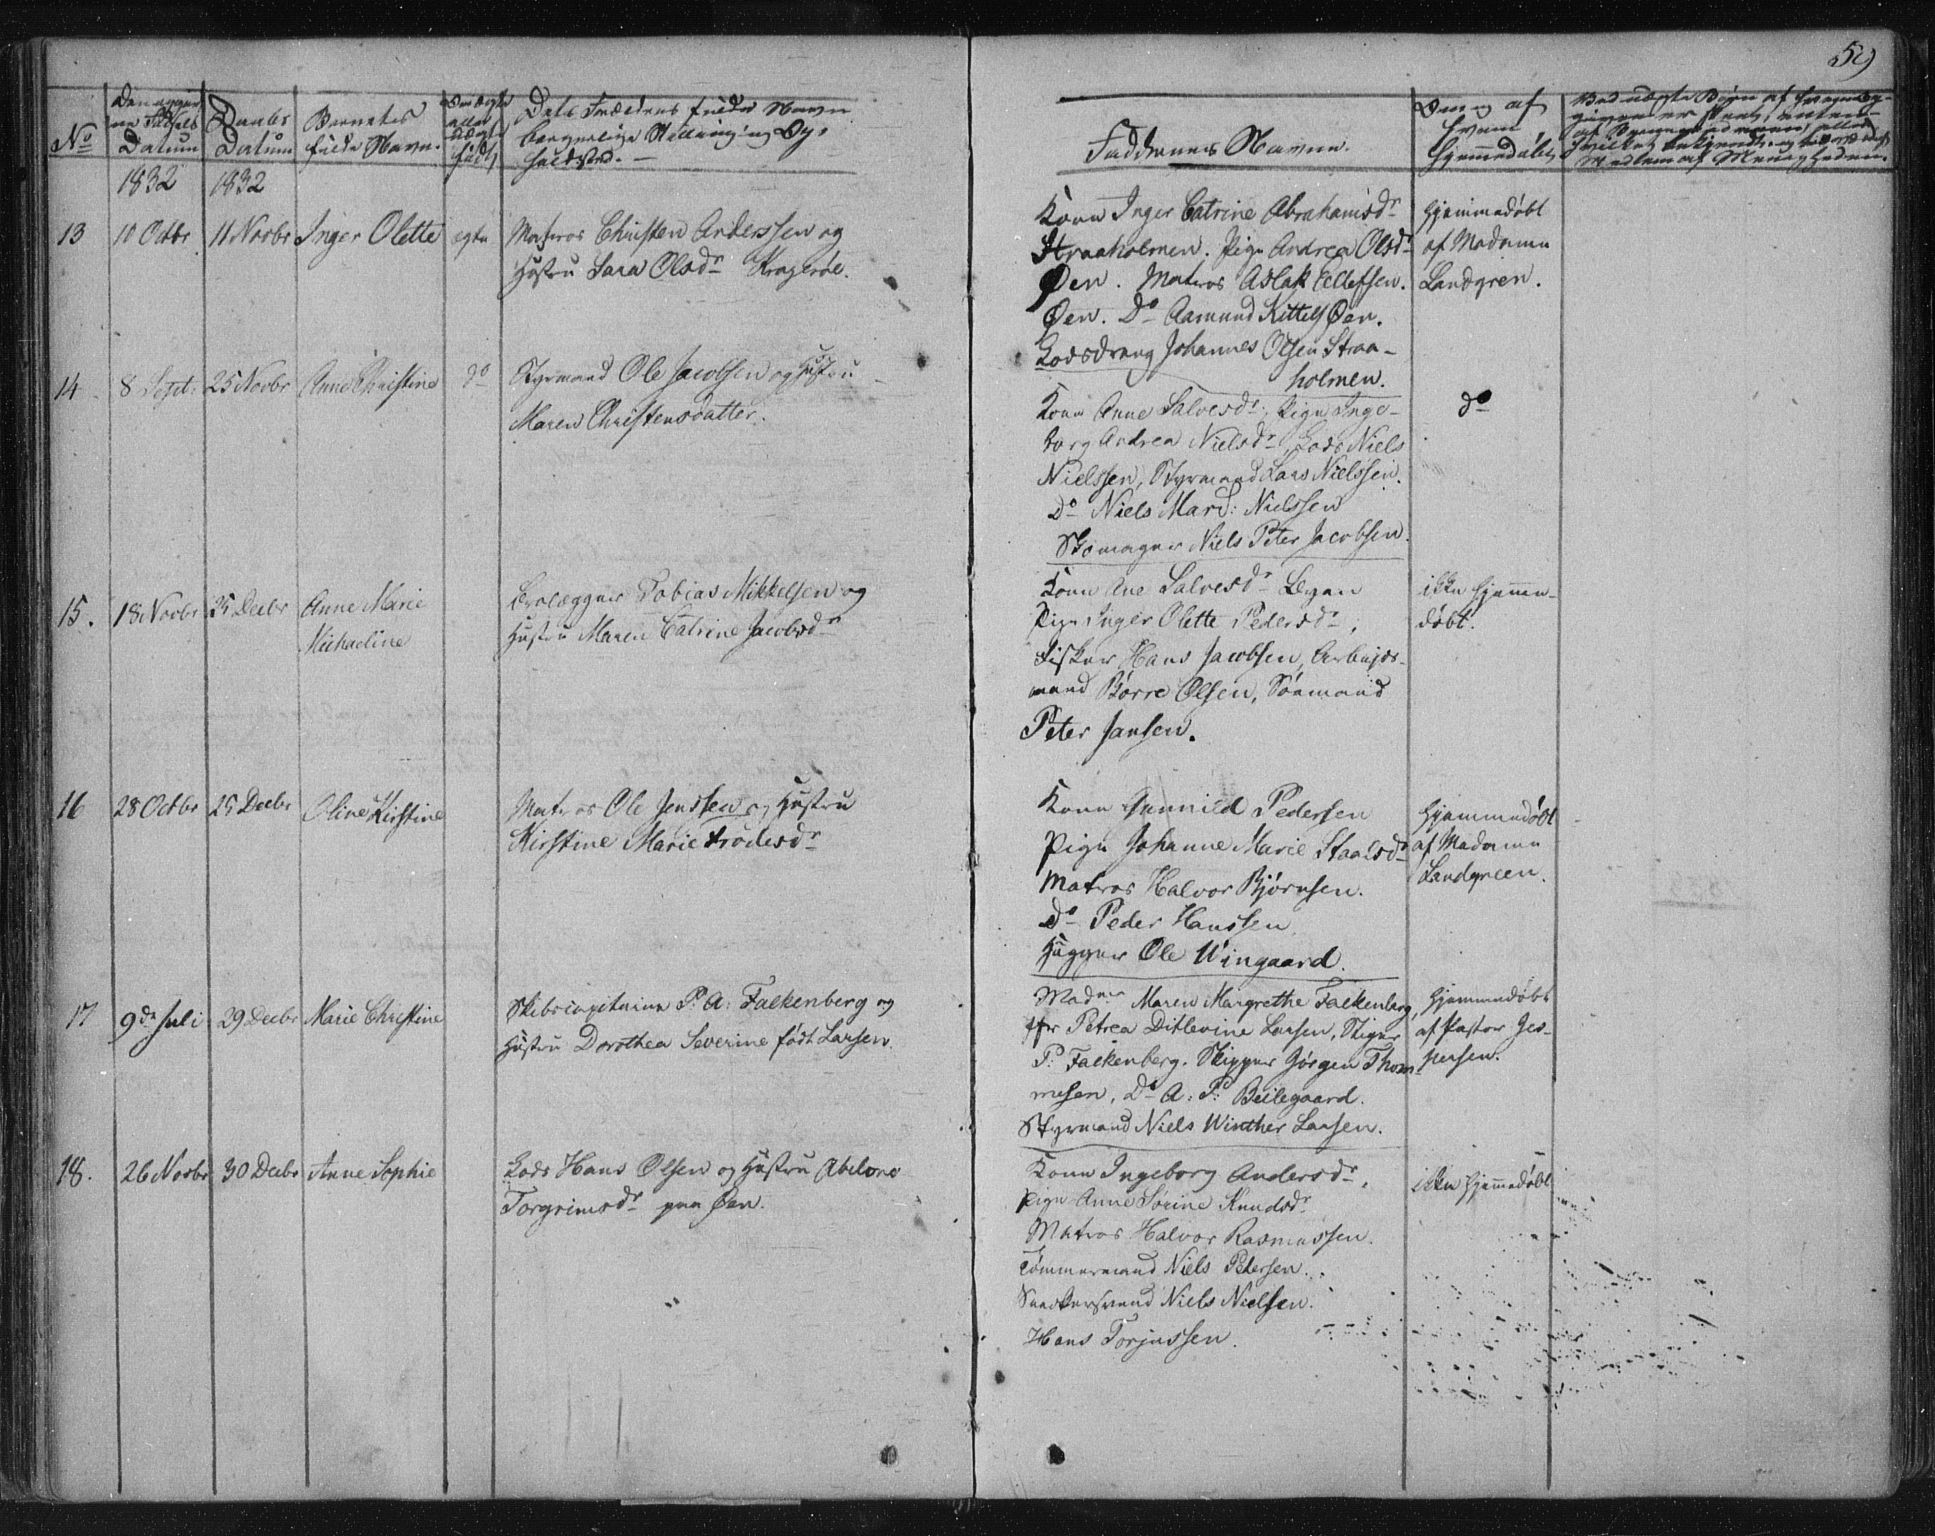 59
No
Datum
Daabs
Datum
Barnets
fulde Navn.
Dets Forældres fulde Navn
borgerlige Stilling og Op-
holdsted. —
Faddernes Navne.
Om og af
hvem
hjemmedøbt
1832 1832
13 10 Octbr 11 Novbr Inger Olette ægte Matros Christen Anderssen og
Hustru Sara Olsdr Kragerøe.
Kone Inger Catrine Abrahamsdr
Straaholmen. Pige Andrea Olsdr
Øen. Matros Aslak Ellefsen.
Øen. Do Aamund Kittels Øen.
Losdreng Johannes Olsen Straa-
holmen.
Hjemmedøbt
af Madame
Landgren.
14 8 Sept. 25 Novbr Anne Christine do Styrmand Ole Jacobsen og Hustru
Maren Christensdatter.
Kone Anne Salvesdr, Pige Inge-
borg Andrea Nielsdr, Lods Niels
Nielssen, Styrmand Lars Nielssen.
Do Niels Mard: Nielssen
Skomager Niels Peter Jacobsen.
do
15. 18 Novbr 25 Decbr Anne Marie
Michaeline
Brolægger Tobias Mikkelsen og
Hustru Maren Catrine Jacobsdr
Kone Ane Salvesdr
Pige Inger Olette Pedersdr,
Fisker Hans Jacobsen, Arbeids-
mand Børre Olsen, Sømand
Peter Jansen.
ikke hjemme-
døbt.
16 28 Octbr 25 Decbr Oline Kirstine Matros Ole Jenssen og Hustru
Kirstine Marie Frodesdr
Kone Gunnild Pedersen
Pige Johanne Marie Staalsdr
Matros Halvor Bjørnsen.
do Peder Hanssen
Hugger Ole Wingaard.
Hjemmedøbt
af Madame
Landgreen.
17 9de Juli 29 Decbr Marie Christine Skibscapitaine P. A. Falkenberg og
Hustru Dorothea Severine født Larsen.
Madme Maren Margrethe Falkenberg,
Jfr Petrea Ditlevine Larsen,
P. Falkenberg. Skipper Jørgen Thom-
mesen, Do A. P. Beilegaard.
Styrmand Niels Winther Larsen.
Hjemmedøbt
af Pastor Jes-
persen.
18. 26 Novbr 30 Decbr Anne Sophie Lods Hans Olsen og Hustru Abelone
Torgrimsdr paa Øen.
Kone Ingeborg Andersdr,
Pige Anne Sørine Knudsdr
Matros Halvor Rasmussen.
Tømmermand Niels Petersen.
Snedkersvend Niels Nielsen.
Hans Torjussen.
ikke hjemmedøbt